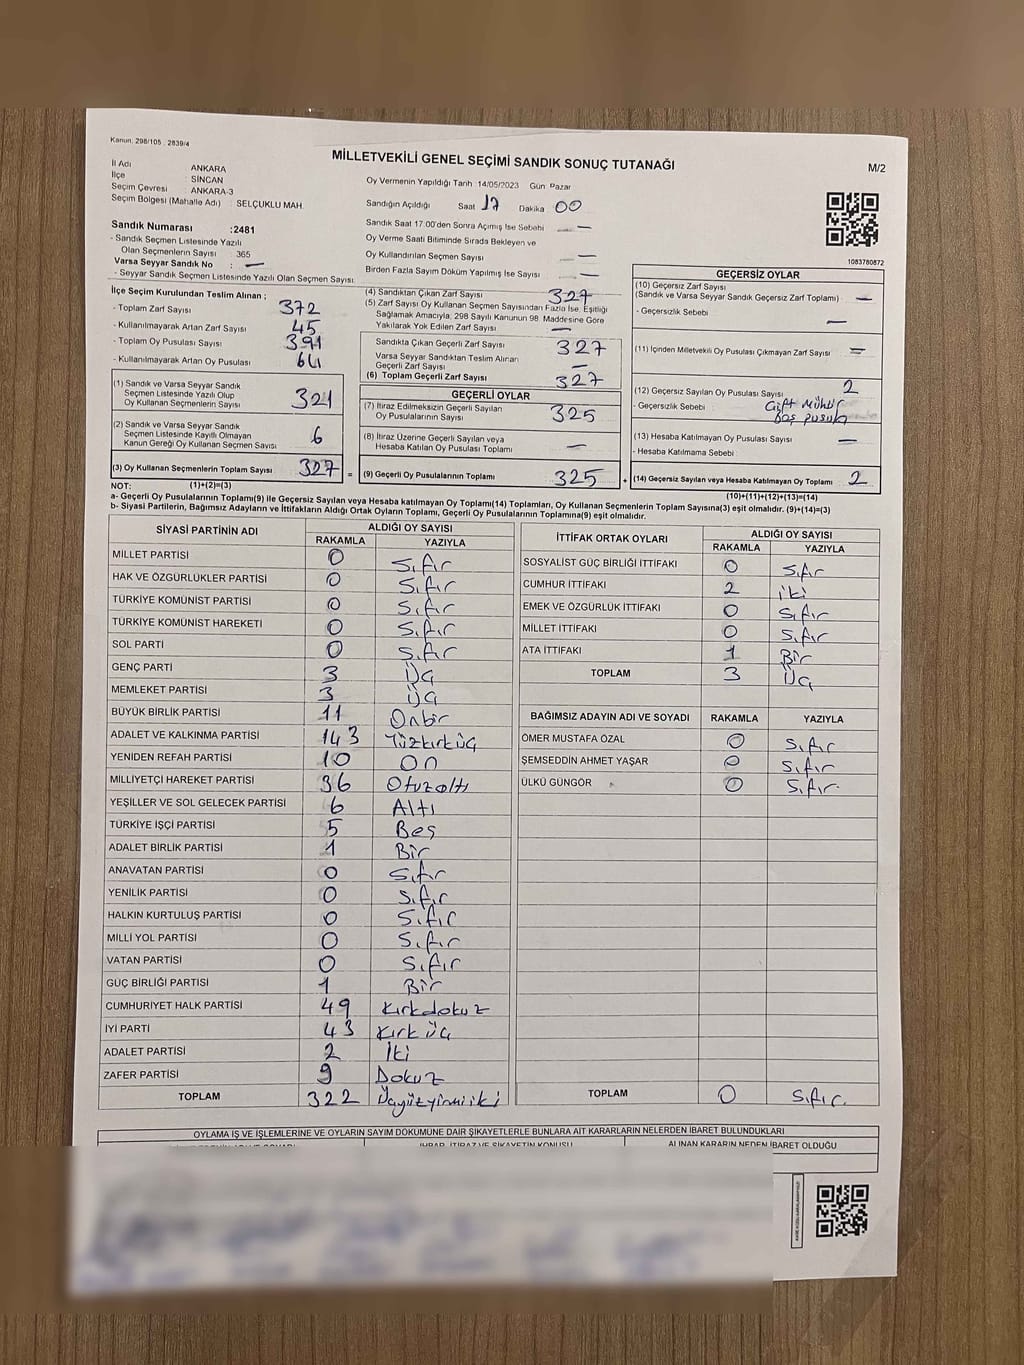 Kanun, 298/105 , 2839/4
MİLLETVEKİLİ GENEL SEÇİMİ SANDIK SONUÇ TUTANAĞI
M/2
İl Adı ANKARA
İlçe : SİNCAN
Seçim Çevresi : ANKARA-3
Seçim Bölgesi (Mahalle Adı) : SELÇUKLU MAH.
Sandık Numarası :2481
- Sandık Seçmen Listesinde Yazılı
Olan Seçmenlerin Sayısı 365
Varsa Seyyar Sandık No : —
- Seyyar Sandık Seçmen Listesinde Yazılı Olan Seçmen Sayısı:
Oy Vermenin Yapıldığı Tarih :14/05/2023 Gün: Pazar
Sandığın Açıldığı Saat 17 Dakika 00
Sandık Saat 17:00'den Sonra Açımış İse Sebebi —
Oy Verme Saati Bitiminde Sırada Bekleyen ve
Oy Kullandırılan Seçmen Sayısı —
Birden Fazla Sayım Döküm Yapılmış İse Sayısı —
1083780872
İlçe Seçim Kurulundan Teslim Alınan ;
- Toplam Zarf Sayısı 372
- Kullanılmayarak Artan Zarf Sayısı 45
- Toplam Oy Pusulası Sayısı 391
- Kullanılmayarak Artan Oy Pusulası 64
(1) Sandık ve Varsa Seyyar Sandık
Seçmen Listesinde Yazılı Olup
Oy Kullanan Seçmenlerin Sayısı 321
(2) Sandık ve Varsa Seyyar Sandık
Seçmen Listesinde Kayıtlı Olmayan
Kanun Gereği Oy Kullanan Seçmen Sayısı 6
(3) Oy Kullanan Seçmenlerin Toplam Sayısı 327 =
(4) Sandıktan Çıkan Zarf Sayısı 327
(5) Zarf Sayısı Oy Kullanan Seçmen Sayısından Fazla İse, Eşitliği
Sağlamak Amacıyla, 298 Sayılı Kanunun 98. Maddesine Göre
Yakılarak Yok Edilen Zarf Sayısı —
Sandıkta Çıkan Geçerli Zarf Sayısı 327
Varsa Seyyar Sandıktan Teslim Alınan
Geçerli Zarf Sayısı —
(6) Toplam Geçerli Zarf Sayısı 327
GEÇERLİ OYLAR
(7) İtiraz Edilmeksizin Geçerli Sayılan
Oy Pusulalarının Sayısı 325
(8) İtiraz Üzerine Geçerli Sayılan veya
Hesaba Katılan Oy Pusulası Toplamı —
(9) Geçerli Oy Pusulalarının Toplamı 325 +
GEÇERSİZ OYLAR
(10) Geçersiz Zarf Sayısı
(Sandık ve Varsa Seyyar Sandık Geçersiz Zarf Toplamı) —
- Geçersizlik Sebebi —
(11) İçinden Milletvekili Oy Pusulası Çıkmayan Zarf Sayısı =
(12) Geçersiz Sayılan Oy Pusulası Sayısı 2
- Geçersizlik Sebebi Çift Mühür
Boş pusula
(13) Hesaba Katılmayan Oy Pusulası Sayısı —
- Hesaba Katılmama Sebebi
(14) Geçersiz Sayılan veya Hesaba Katılmayan Oy Toplamı 2
NOT: (1)+(2)=(3) (10)+(11)+(12)+(13)=(14)
a- Geçerli Oy Pusulalarının Toplamı(9) ile Geçersiz Sayılan veya Hesaba katılmayan Oy Toplamı(14) Toplamları, Oy Kullanan Seçmenlerin Toplam Sayısına(3) eşit olmalıdır. (9)+(14)=(3)
b- Siyasi Partilerin, Bağımsız Adayların ve İttifakların Aldığı Ortak Oyların Toplamı, Geçerli Oy Pusulalarının Toplamına(9) eşit olmalıdır.
SİYASİ PARTİNİN ADI ALDIĞI OY SAYISI
RAKAMLA YAZIYLA
MİLLET PARTİSİ 0 Sıfır
HAK VE ÖZGÜRLÜKLER PARTİSİ 0 Sıfır
TÜRKİYE KOMÜNİST PARTİSİ 0 Sıfır
TÜRKİYE KOMÜNİST HAREKETİ 0 Sıfır
SOL PARTİ 0 Sıfır
GENÇ PARTİ 3 Üç
MEMLEKET PARTİSİ 3 Üç
BÜYÜK BİRLİK PARTİSİ 11 Onbir
ADALET VE KALKINMA PARTİSİ 143 Yüzkırküç
YENİDEN REFAH PARTİSİ 10 On
MİLLİYETÇİ HAREKET PARTİSİ 36 Otuzaltı
YEŞİLLER VE SOL GELECEK PARTİSİ 6 Altı
TÜRKİYE İŞÇİ PARTİSİ 5 Beş
ADALET BİRLİK PARTİSİ 1 Bir
ANAVATAN PARTİSİ 0 Sıfır
YENİLİK PARTİSİ 0 Sıfır
HALKIN KURTULUŞ PARTİSİ 0 Sıfır
MİLLİ YOL PARTİSİ 0 Sıfır
VATAN PARTİSİ 0 Sıfır
GÜÇ BİRLİĞİ PARTİSİ 1 Bir
CUMHURİYET HALK PARTİSİ 49 Kırkdokuz
İYİ PARTİ 43 Kırk üç
ADALET PARTİSİ 2 İki
ZAFER PARTİSİ 9 Dokuz
TOPLAM 322 Üçyüzyirmiiki
İTTİFAK ORTAK OYLARI ALDIĞI OY SAYISI
RAKAMLA YAZIYLA
SOSYALİST GÜÇ BİRLİĞİ İTTİFAKI 0 Sıfır
CUMHUR İTTİFAKI 2 iki
EMEK VE ÖZGÜRLÜK İTTİFAKI 0 Sıfır
MİLLET İTTİFAKI 0 Sıfır
ATA İTTİFAKI 1 Bir
TOPLAM 3 Üç
BAĞIMSIZ ADAYIN ADI VE SOYADI RAKAMLA YAZIYLA
ÖMER MUSTAFA ÖZAL 0 Sıfır
ŞEMSEDDİN AHMET YAŞAR 0 Sıfır
ÜLKÜ GÜNGÖR 0 Sıfır
TOPLAM 0 Sıfır.
OYLAMA İŞ VE İŞLEMLERİNE VE OYLARIN SAYIM DÖKÜMÜNE DAİR ŞİKAYETLERLE BUNLARA AİT KARARLARIN NELERDEN İBARET BULUNDUKLARI
İHBAR, İTİRAZ VE ŞİKAYETİN KONUSU ALINAN KARARIN NEDEN İBARET OLDUĞU